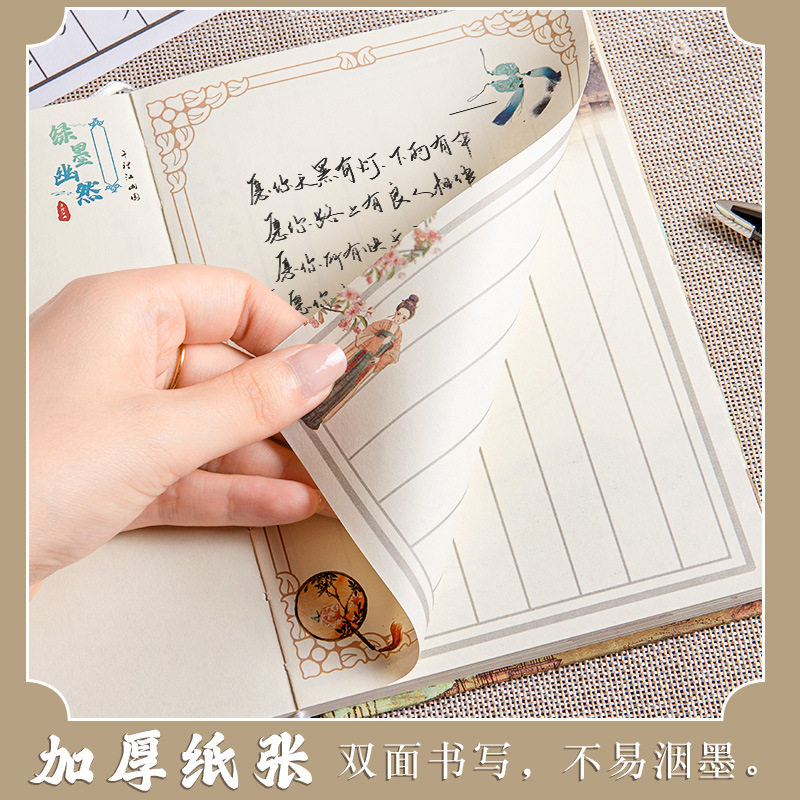 绿墨幽然
千里江山图
愿你天黑有灯.下雨有伞
愿你路上有良人相伴
愿你所有快
愿你
加厚纸张 双面书写，不易洇墨。